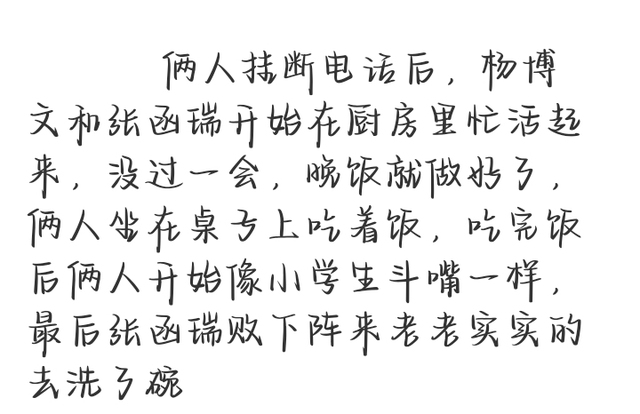 俩人挂断电话后，杨博
文和张函瑞开始在厨房里忙活起
来，没过一会，晚饭就做好了，
俩人坐在桌子上吃着饭，吃完饭
后俩人开始像小学生斗嘴一样，
最后张函瑞败下阵来老老实实的
去洗了碗